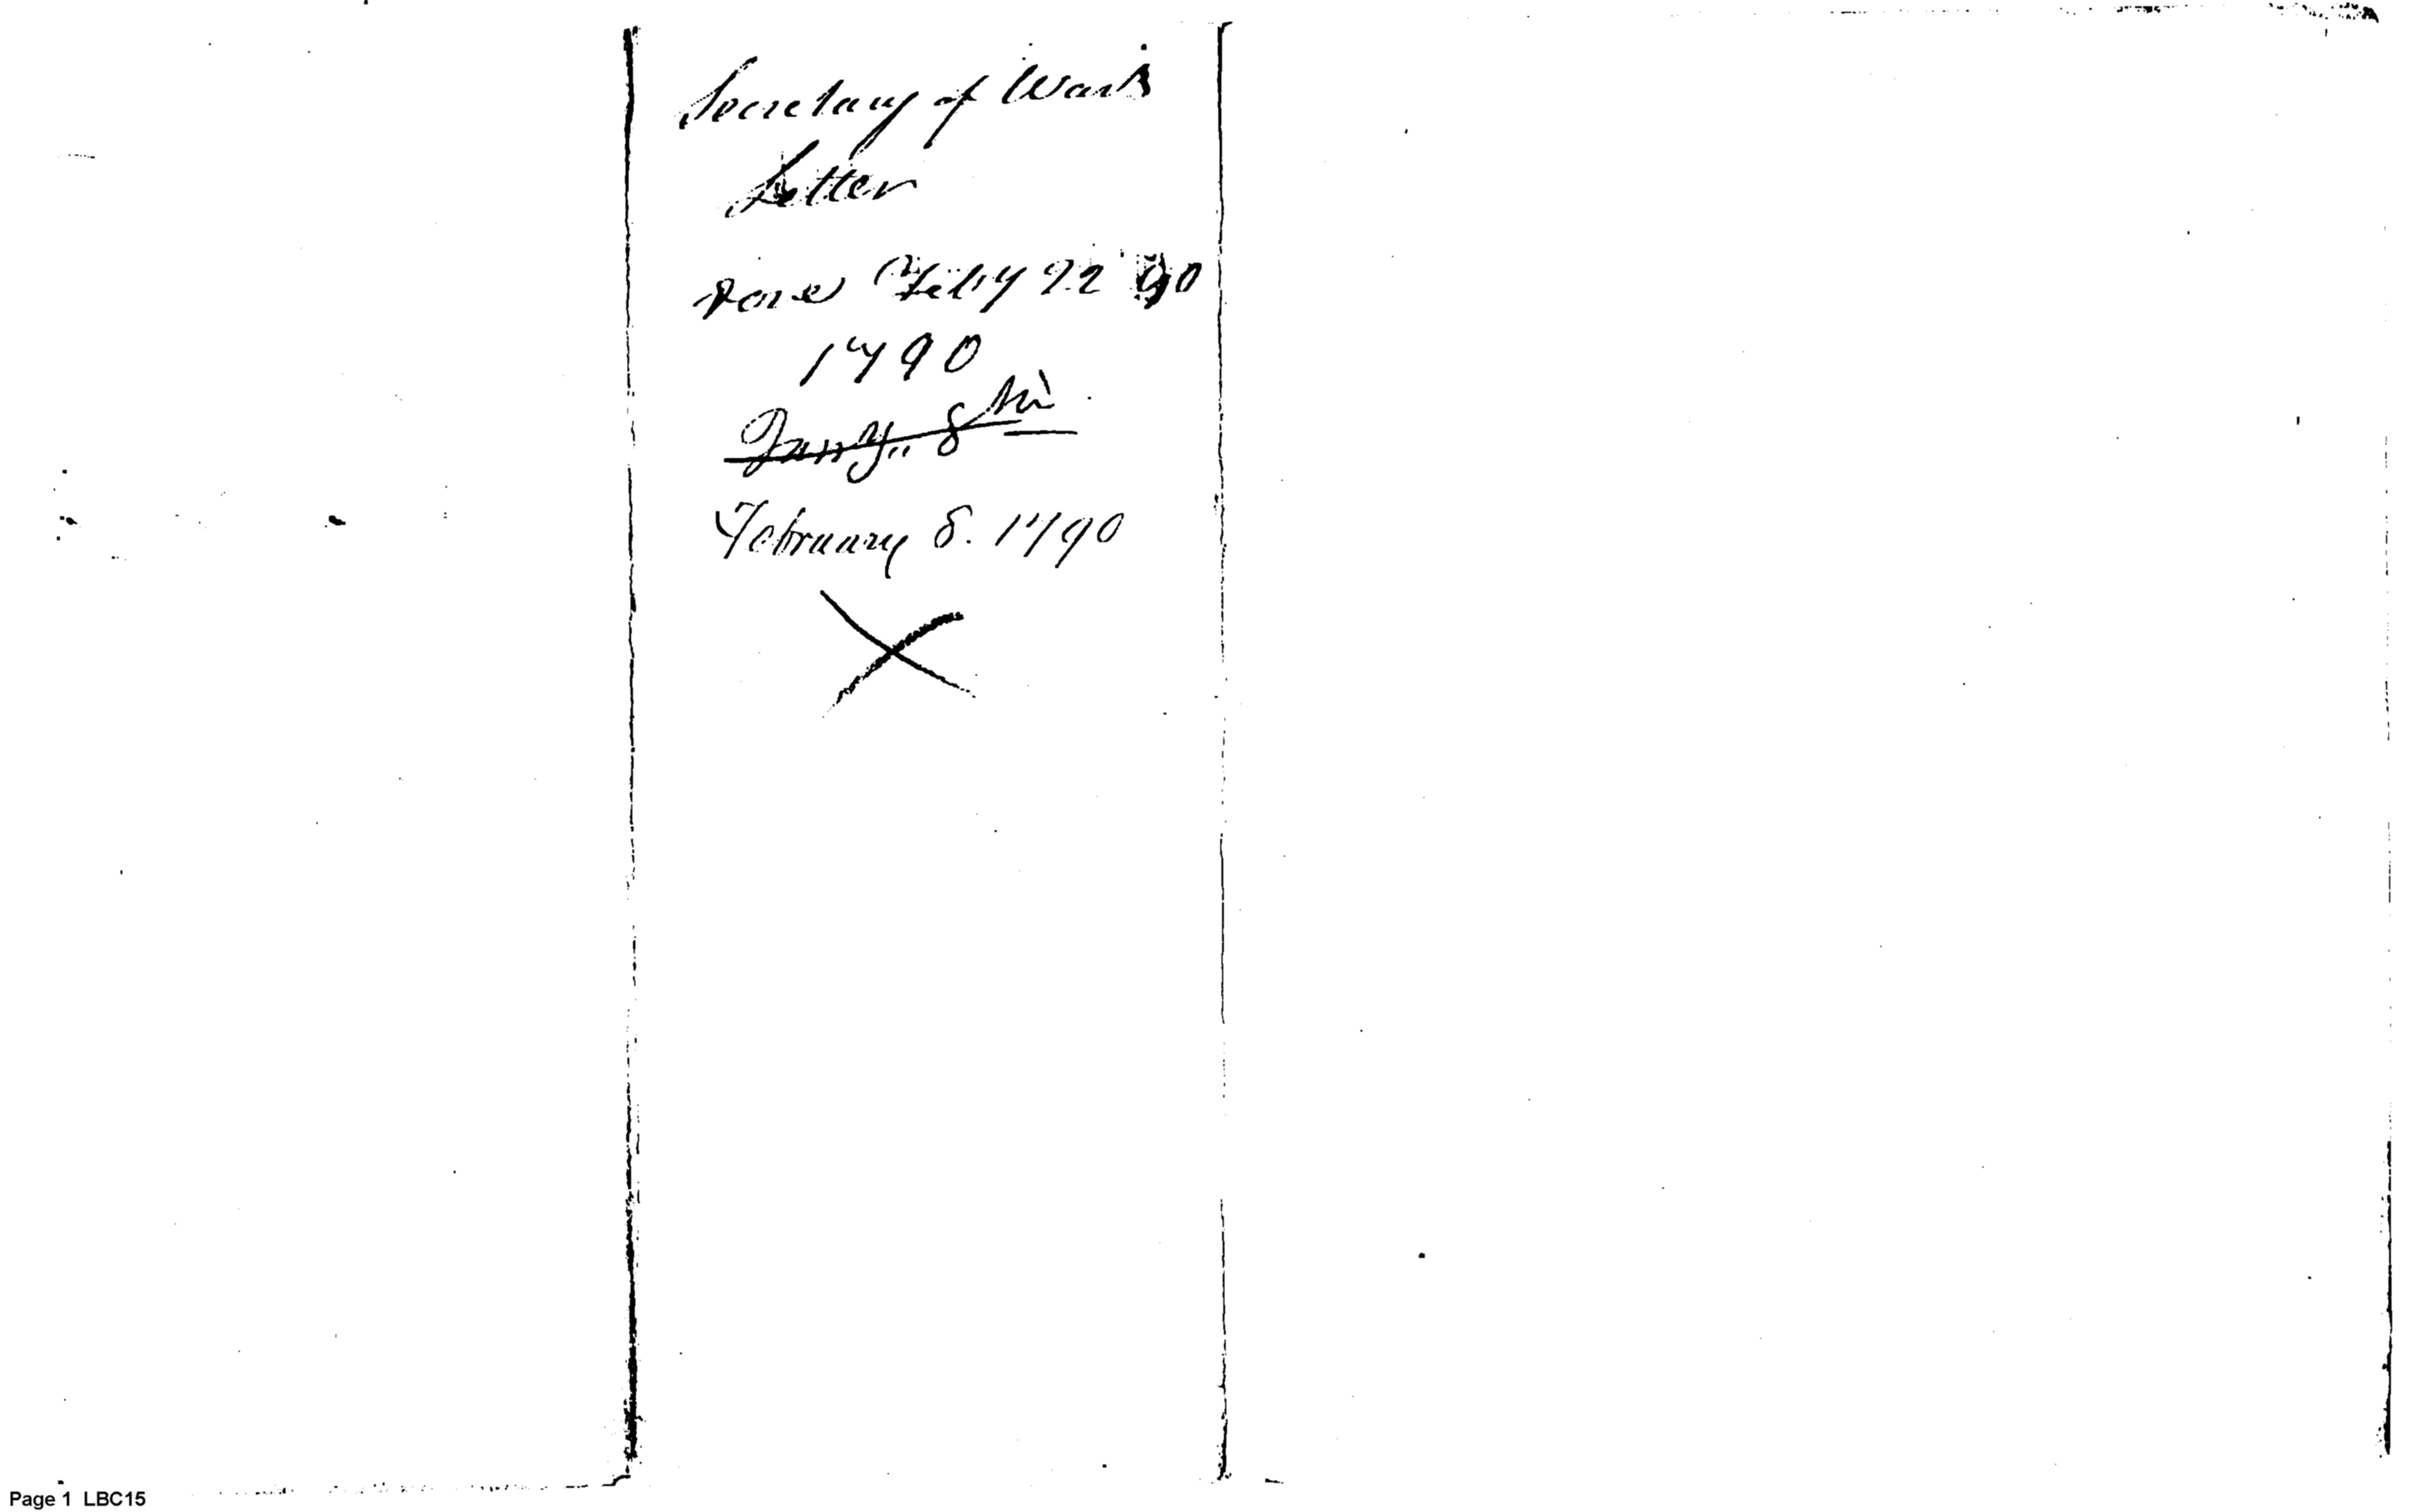 Secretary of War's
Letter
Feby 22 90
1790
Jany 8th
February 8. 1790
Page 1 LBC15